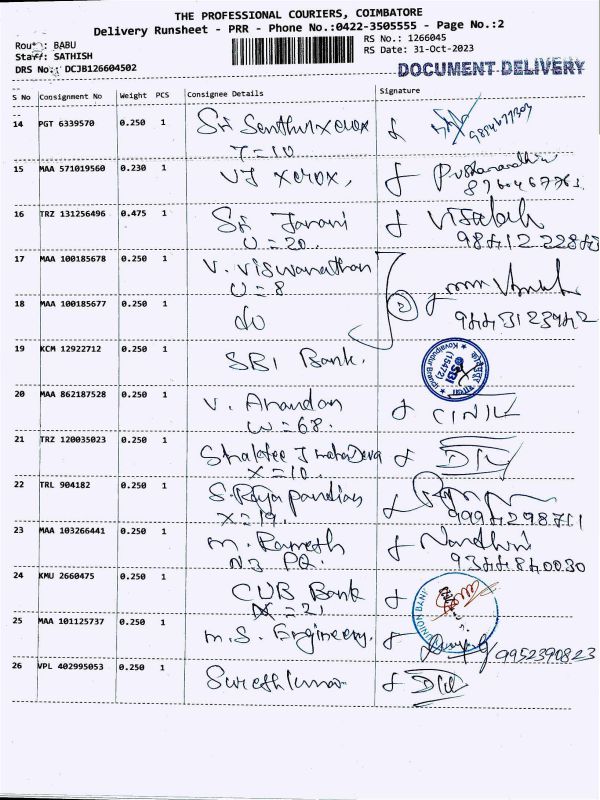 THE PROFESSIONAL COURIERS, COIMBATORE
Delivery Runsheet - PRR - Phone No.:0422-3505555 - Page No.:2
Route: BABU
RS No.: 1266045
Staff: SATHISH
RS Date: 31-Oct-2023
DRS No.: DCJB126604502
DOCUMENT DELIVERY
S No Consignment No Weight PCS Consignee Details Signature
14 PGT 6339570 0.250 1 Sri Senthur xerox
T=10
15 MAA 571019560 0.230 1 VJ xerox,
16 TRZ 131256496 0.475 1 Sri Janani
U=20.
17 MAA 100185678 0.250 1 V. Viswanathan
U=8
18 MAA 100185677 0.250 1 do 2
9443123942
19 KCM 12922712 0.250 1 SBI Bank. SBI (15472) Kovaipudur Branch
20 MAA 862187528 0.250 1 V. Anandan
W=68.
21 TRZ 120035023 0.250 1
X=10.
22 TRL 904182 0.250 1 S. Raja pandian
X=19. 9994298711
23 MAA 103266441 0.250 1 M. Ramesh Nandhini
N3 PQ. 9344840030
24 KMU 2660475 0.250 1 CUB Bank UNION BANK
=21
25 MAA 101125737 0.250 1 M.S. Engineery.
9952390823
26 VPL 402995053 0.250 1 Sureshkumar